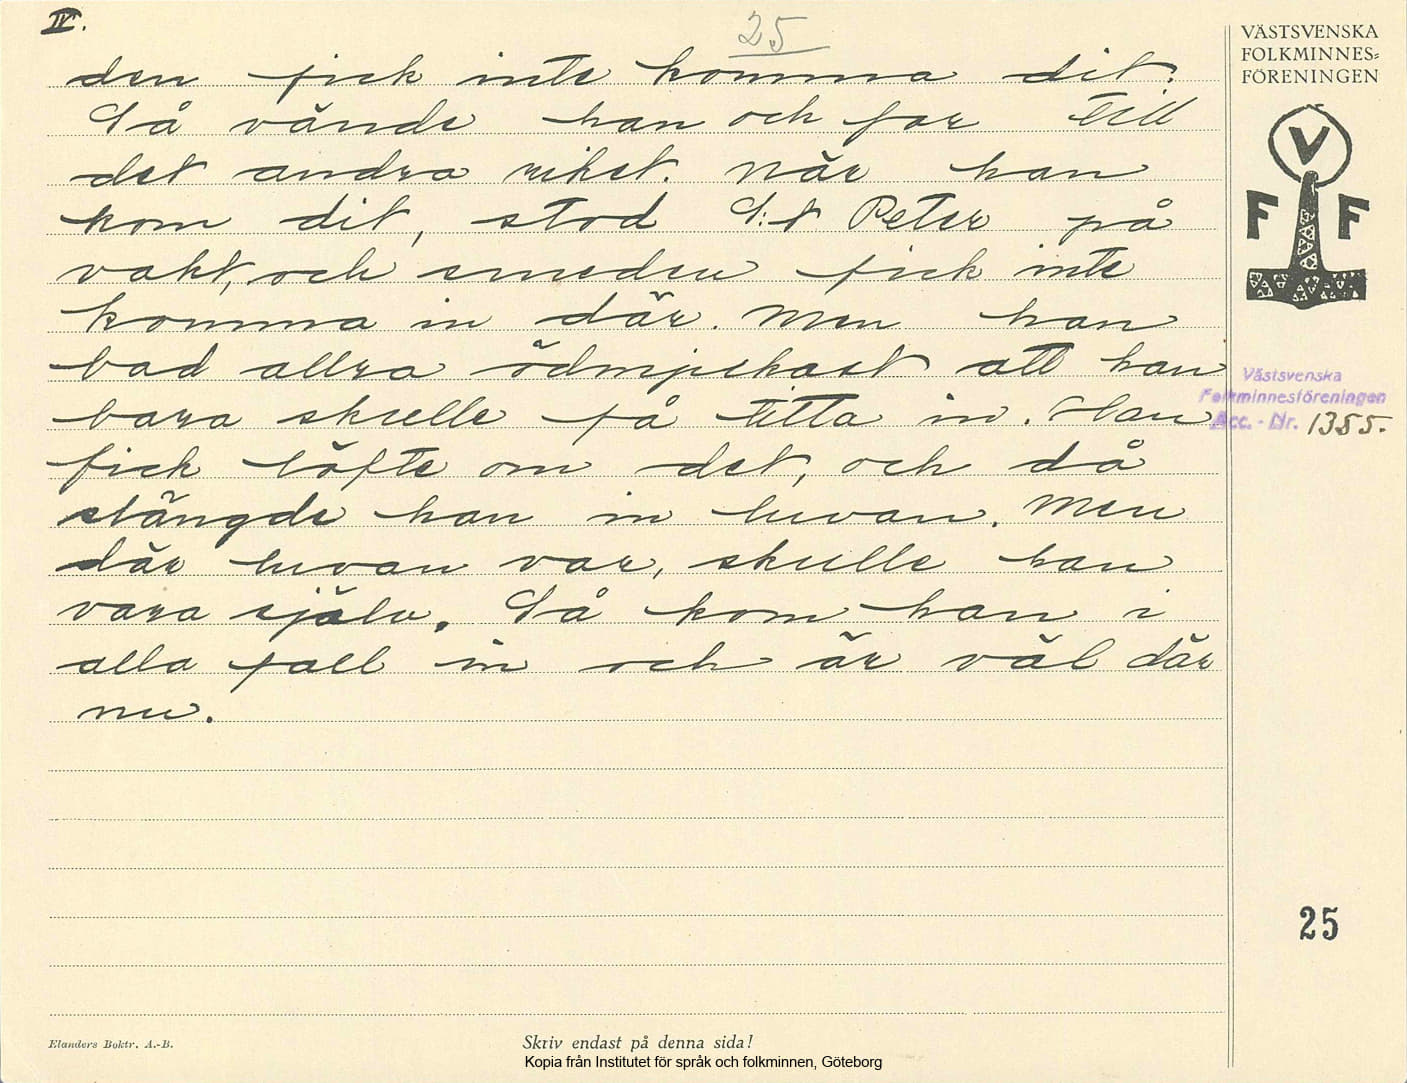 IV.
25
den fick inte komma dit.
Så vände han och for till
det andra riket. När han
kom dit, stod S:t Peter på
vakt, och smeden fick inte
komma in där. Men han
bad allra ödmjukast att han
bara skulle få titta in. Han
fick löfte om det, och då
slängde han in luvan. Men
där luvan var, skulle han
vara själv. Så kom han i
alla fall in och är väl där
nu.
VÄSTSVENSKA
FOLKMINNES=
FÖRENINGEN
V
F F
Västsvenska
Folkminnesföreningen
Acc. - Nr. 1355.
25
Elanders Boktr. A.-B.
Skriv endast på denna sida!
Kopia från Institutet för språk och folkminnen, Göteborg